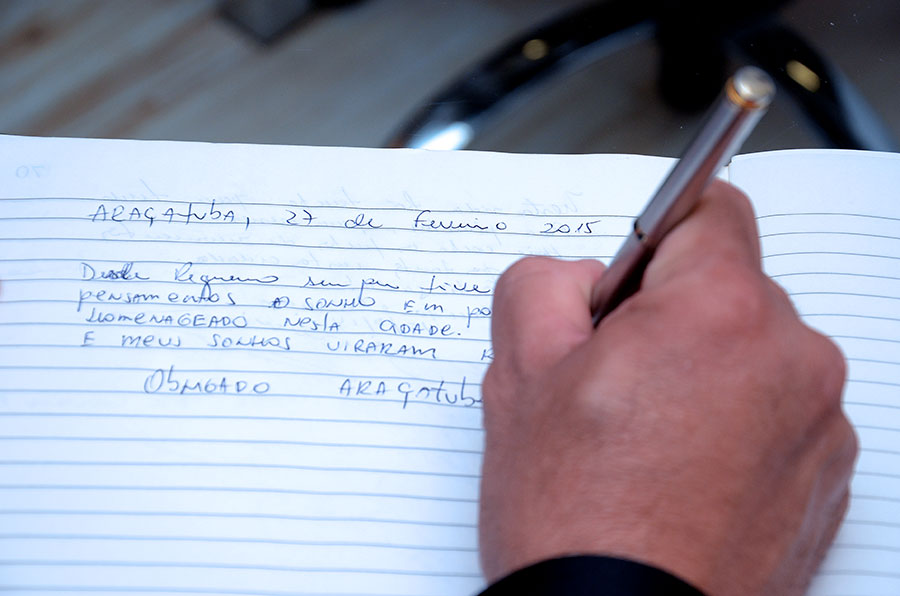 ARAÇAtubA, 27 de Fevereiro 2015
Desde Pequeno sempre tive
pensamentos o sonho Em po
Homenageado nesta cidade.
E meus sonhos viraram R
Obrigado ARAÇAtuba